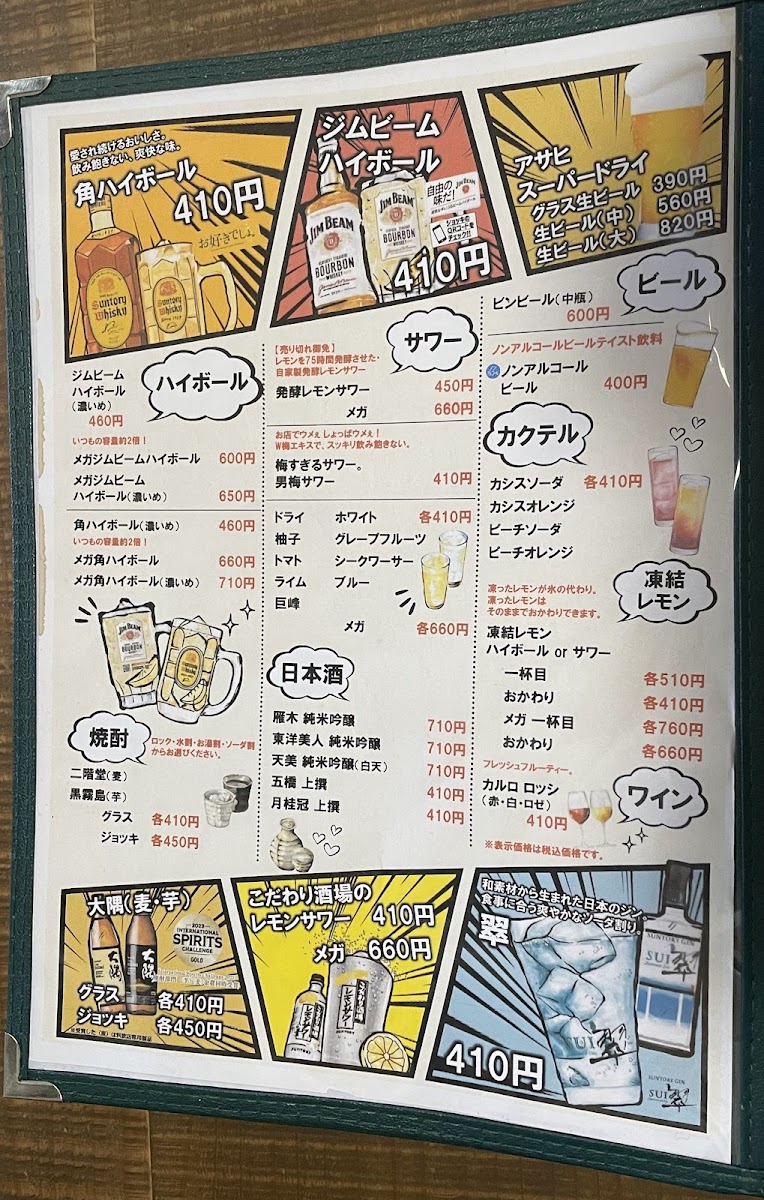 愛され続けるおいしさ。
飲み飽きない、爽快な味。
角ハイボール
410円
お好きでしょ。
SUNTORY
WHISKY
ジムビーム
ハイボール
自由の
味だ!
ジョッキの
QRコードを
チェック!!
JIM BEAM
BOURBON
WHISKEY
410円
アサヒ
スーパードライ
グラス生ビール 390円
生ビール(中) 560円
生ビール(大) 820円
ハイボール
ジムビーム
ハイボール
(濃いめ)
460円
いつもの容量約2倍!
メガジムビームハイボール 600円
メガジムビーム
ハイボール(濃いめ) 650円
角ハイボール(濃いめ) 460円
いつもの容量約2倍!
メガ角ハイボール 660円
メガ角ハイボール(濃いめ) 710円
焼酎
ロック・水割・お湯割・ソーダ割
からお選びください。
二階堂(麦)
黒霧島(芋)
グラス 各410円
ジョッキ 各450円
サワー
【売り切れ御免】
レモンを75時間発酵させた・
自家製発酵レモンサワー
発酵レモンサワー 450円
メガ 660円
お店でウメぇ しょっぱウメぇ!
W梅エキスで、スッキリ飲み飽きない。
梅すぎるサワー。
男梅サワー 410円
ドライ ホワイト 各410円
柚子 グレープフルーツ
トマト シークワーサー
ライム ブルー
巨峰
メガ 各660円
日本酒
雁木 純米吟醸 710円
東洋美人 純米吟醸 710円
天美 純米吟醸(白天) 710円
五橋 上撰 410円
月桂冠 上撰 410円
ビール
ビンビール(中瓶)
600円
ノンアルコールビールテイスト飲料
ノンアルコール
ビール 400円
カクテル
カシスソーダ 各410円
カシスオレンジ
ピーチソーダ
ピーチオレンジ
凍結
レモン
凍ったレモンが氷の代わり。
凍ったレモンは
そのままでおかわりできます。
凍結レモン
ハイボール or サワー
一杯目 各510円
おかわり 各410円
メガ 一杯目 各760円
おかわり 各660円
ワイン
フレッシュフルーティー。
カルロ ロッシ
(赤・白・ロゼ)
410円
※表示価格は税込価格です。
大隅(麦・芋)
大隅
大隅
2023
INTERNATIONAL
SPIRITS
CHALLENGE
GOLD
グラス 各410円
ジョッキ 各450円
こだわり酒場の
レモンサワー 410円
メガ 660円
こだわり酒場の
レモンサワー
SUNTORY
和素材から生まれた日本のジン。
食事に合う爽やかなソーダ割り。
翠
SUNTORY GIN
SUI 翠
SUI 翠
410円
SUNTORY GIN
SUI 翠